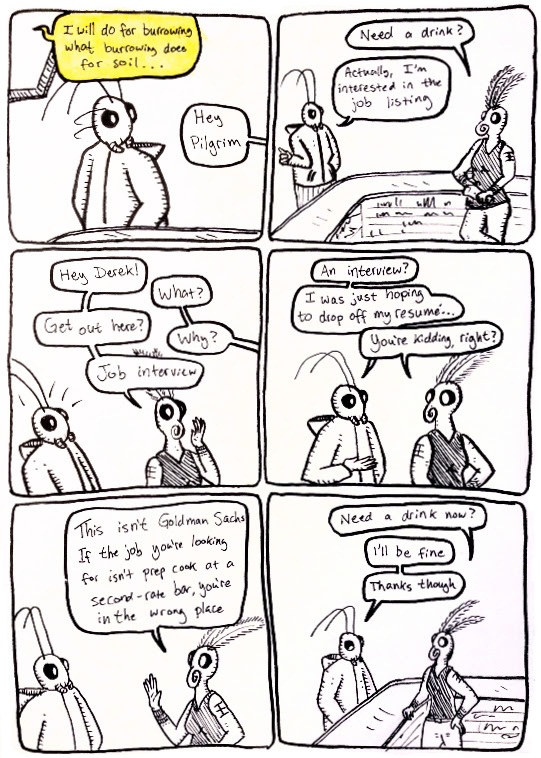 I will do for burrowing
what burrowing does
for soil...
Hey
Pilgrim
Need a drink?
Actually, I'm
interested in the
job listing
Hey Derek!
What?
Get out here?
Why?
Job interview
An interview?
I was just hoping
to drop off my resumé...
You're kidding, right?
This isn't Goldman Sachs
If the job you're looking
for isn't prep cook at a
second-rate bar, you're
in the wrong place
Need a drink now?
I'll be fine
Thanks though